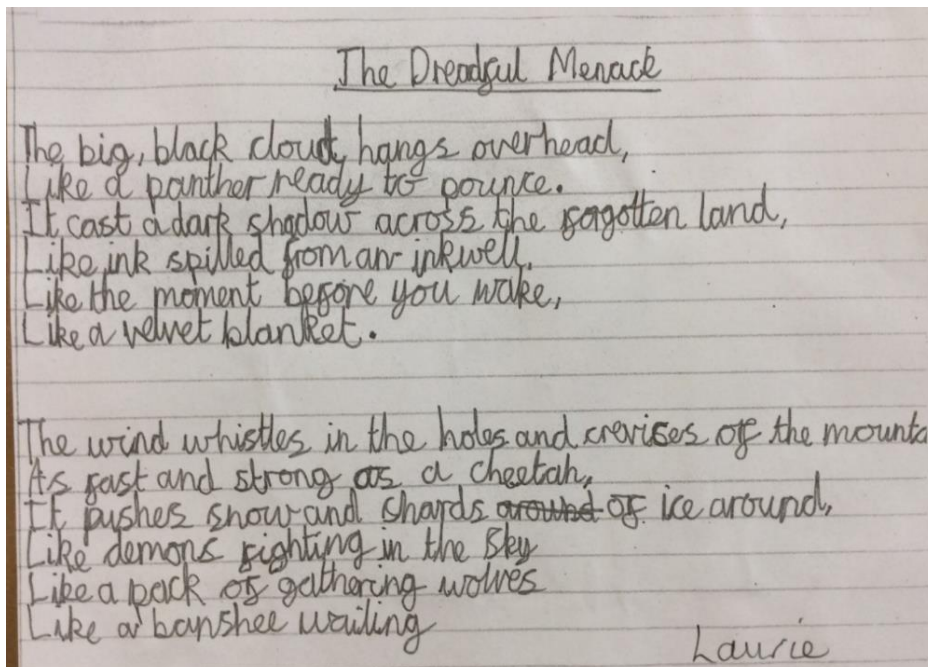 The Dreadful Menack
The big, black cloud, hangs overhead,
Like a panther ready to pounce.
It cast a dark shadow across the forgotten land,
Like ink spilled from an inkwell,
Like the moment before you wake,
Like a velvet blanket.
The wind whistles in the holes and crevises of the mounta
As fast and strong as a cheetah,
It pushes snow and shards around of ice around,
Like demons fighting in the sky
Like a pack of gathering wolves
Like a banshee wailing
Laurie